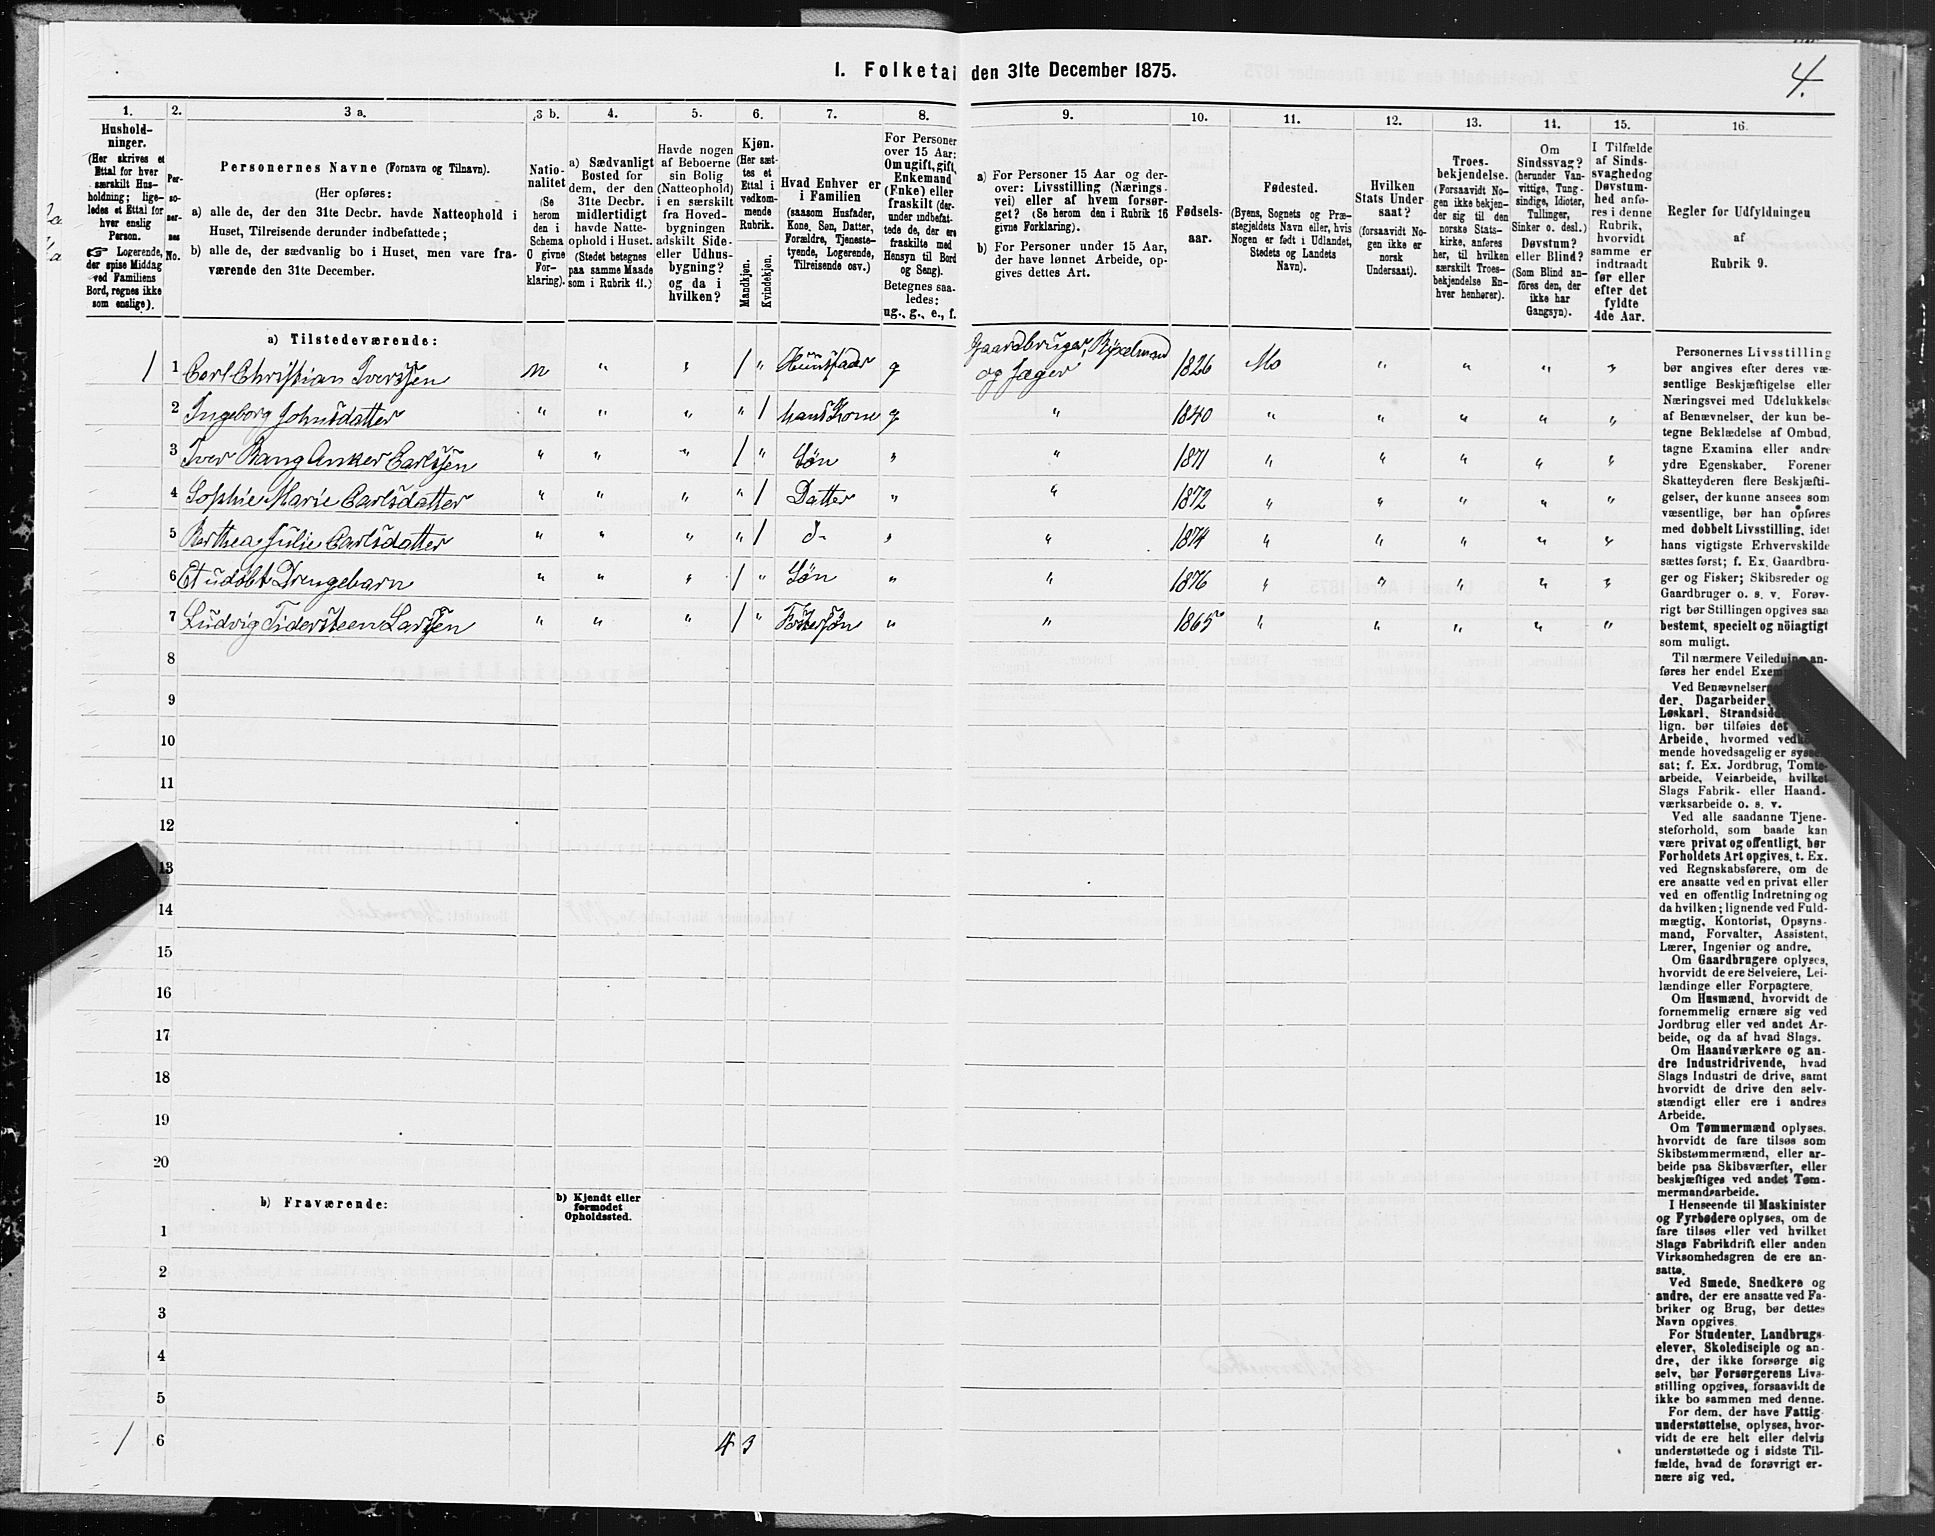 1. Folketæl den 31te December 1875.
4.
1.
Hushold-
ninger.
(Her skrives et
Ettal for hver
særskilt Hus-
holdning; lige-
ledes et Ettal for
hver enslig
Person.
☞ Logerende,
der spise Middag
ved Familiens
Bord, regnes ikke
som enslige).
2.
Per-
so-
ner-
nes
No.
3 a.
Personernes Navne (Fornavn og Tilnavn).
(Her opføres:
a) alle de, der den 31te Decbr. havde Natteophold i
Huset, Tilreisende derunder indbefattede;
b) alle de, der sædvanlig bo i Huset, men vare fra-
værende den 31te December.
3 b.
Natio-
nalitet
(Se
herom
den i
Schema
O givne
For-
klaring).
4.
a) Sædvanligt
Bosted for
dem, der den
31te Decbr.
midlertidigt
havde Natte-
ophold i Huset.
(Stedet betegnes
paa samme Maade
som i Rubrik 11.)
5.
Havde nogen
af Beboerne
sin Bolig
(Natteophold)
i en særskilt
fra Hoved-
bygningen
adskilt Side-
eller Udhus-
bygning?
og da i
hvilken?
6.
Kjøn.
(Her sæt-
tes et
Ettal i
vedkom-
mende
Rubrik.
Mandkjøn.
Kvindekjøn.
7.
Hvad Enhver er
i Familien
(saasom Husfader,
Kone, Søn, Datter,
Forældre, Tjeneste-
tyende, Logerende,
Tilreisende osv.)
8.
For Personer
over 15 Aar:
Om ugift, gift,
Enkemand
(Enke) eller
fraskilt (der-
under indbefat-
tede de, der ere
fraskilte med
Hensyn til Bord
og Seng).
Betegnes saa-
ledes:
ug., g., e., f.
9.
a) For Personer 15 Aar og der-
over: Livsstilling (Nærings-
vei) eller af hvem forsør-
get? (Se herom den i Rubrik 16
givne Forklaring).
b) For Personer under 15 Aar,
der have lønnet Arbeide, op-
gives dettes Art.
10.
Fødsels-
aar.
11.
Fødested.
(Byens, Sognets og Præ-
stegjeldets Navn eller, hvis
Nogen er født i Udlandet,
Stedets og Landets
Navn).
12.
Hvilken
Stats Under-
saat?
(forsaavidt No-
gen ikke er
norsk
Undersaat).
13.
Troes-
bekjendelse.
(Forsaavidt No-
gen ikke bekjen-
der sig til den
norske Stats-
kirke, anføres
her, til hvilken
særskilt Troes-
bekjendelse En-
hver henhører).
14.
Om
Sindssvag?
(herunder Van-
vittige, Tung-
sindige, Idioter,
Tullinger,
Sinker o. desl.)
Døvstum?
eller Blind?
(Som Blind an-
føres den, der
ikke har
Gangsyn).
15.
I Tilfælde
af Sinds-
svaghed og
Døvstum-
hed anfø-
res i denne
Rubrik,
hvorvidt
samme er
indtraadt
før eller
efter det
fyldte
4de Aar.
16.
Regler for Udfyldningen
af
Rubrik 9.
a) Tilstedeværende:
1 1 Carl Christian Iverssen n " " 1 " Huusfader g Gaardbruger, Rixelmand og Jæger 1826 Mo " " " "
2 Ingeborg Johnsdatter " " " " 1 hans Kone g " 1840 " " " " "
3 Iver Bang Anker Carlssen " " " 1 " Søn " " 1871 " " " " "
4 Sophie Marie Carlsdatter " " " " 1 Datter " " 1872 " " " " "
5 Berthea Julie Carlsdatter " " " " 1 d- " " 1874 " " " " "
6 Et udøbt Drengebarn " " " 1 " Søn " " 1876 " " " " "
7 Ludvig Tidersteen Larssen " " " 1 " " " 1865 " " " " "
8
9
10
11
12
13
14
15
16
17
18
19
20
b) Fraværende:
b) Kjendt eller
formodet
Opholdssted.
1
2
3
4
5
1 6 4 3
Personernes Livsstilling
bør angives efter deres væ-
sentlige Beskjæftigelse eller
Næringsvei med Udelukkelse
af Benævnelser, der kun be-
tegne Beklædelse af Ombud,
tagne Examina eller andre
ydre Egenskaber. Forener
Skatteyderen flere Beskjæfti-
gelser, der kunne ansees som
væsentlige, bør han opføres
med dobbelt Livsstilling, idet
hans vigtigste Erhvervskilde
sættes først; f. Ex. Gaardbru-
ger og Fisker; Skibsreder og
Gaardbruger o. s. v. Forøv-
rigt bør Stillingen opgives saa
bestemt, specielt og nöiagtigt
som muligt.
Til nærmere Veiledning an-
føres her endel Exem
Ved Benævnelsern
der, Dagarbeider,
Løskarl, Strandsid
lign. bør tilføies det
Arbeide, hvormed vedk
mende hovedsagelig er sysse
sat; f. Ex. Jordbrug, Tomte-
arbeide, Veiarbeide, hvilket
Slags Fabrik- eller Haand-
værksarbeide o. s. v.
Ved alle saadanne Tjene-
steforhold, som baade kan
være privat og offentligt, bør
Forholdets Art opgives, t. Ex.
ved Regnskabsførere, om de
ere ansatte ved en privat eller
ved en offentlig Indretning og
da hvilken; lignende ved Fuld-
mægtig, Kontorist, Opsyns-
mand, Forvalter, Assistent,
Lærer, Ingeniør og andre.
Om Gaardbrugere oplyses,
hvorvidt de ere Selveiere, Lei-
lændinge eller Forpagtere.
Om Husmænd, hvorvidt de
fornemmelig ernære sig ved
Jordbrug eller ved andet Ar-
beide, og da af hvad Slags.
Om Haandværkere og an-
dre Industridrivende, hvad
Slags Industri de drive, samt
hvorvidt de drive den selv-
stændigt eller ere i andres
Arbeide.
Om Tømmermænd oplyses,
hvorvidt de fare tilsøs som
Skibstømmermænd, eller ar-
beide paa Skibsværfter, eller
beskjæftiges ved andet Tøm-
mermandsarbeide.
I Henseende til Maskinister
og Fyrbødere oplyses, om de
fare tilsøs eller ved hvilket
Slags Fabrikdrift eller anden
Virksomhedsgren de ere an-
satte.
Ved Smede, Snedkere og
andre, der ere ansatte ved Fa-
briker og Brug, bør dettes
Navn opgives.
For Studenter, Landbrugs-
elever, Skoledisciple og an-
dre, der ikke forsørge sig
selv, bør Forsørgerens Livs-
stilling opgives, forsaavidt de
ikke bo sammen med denne.
For dem, der have Fattig-
understøttelse, oplyses, hvor-
vidt de ere helt eller delvis
understøttede og i sidste Til-
fælde, hvad de forøvrigt er-
nære sig ved.